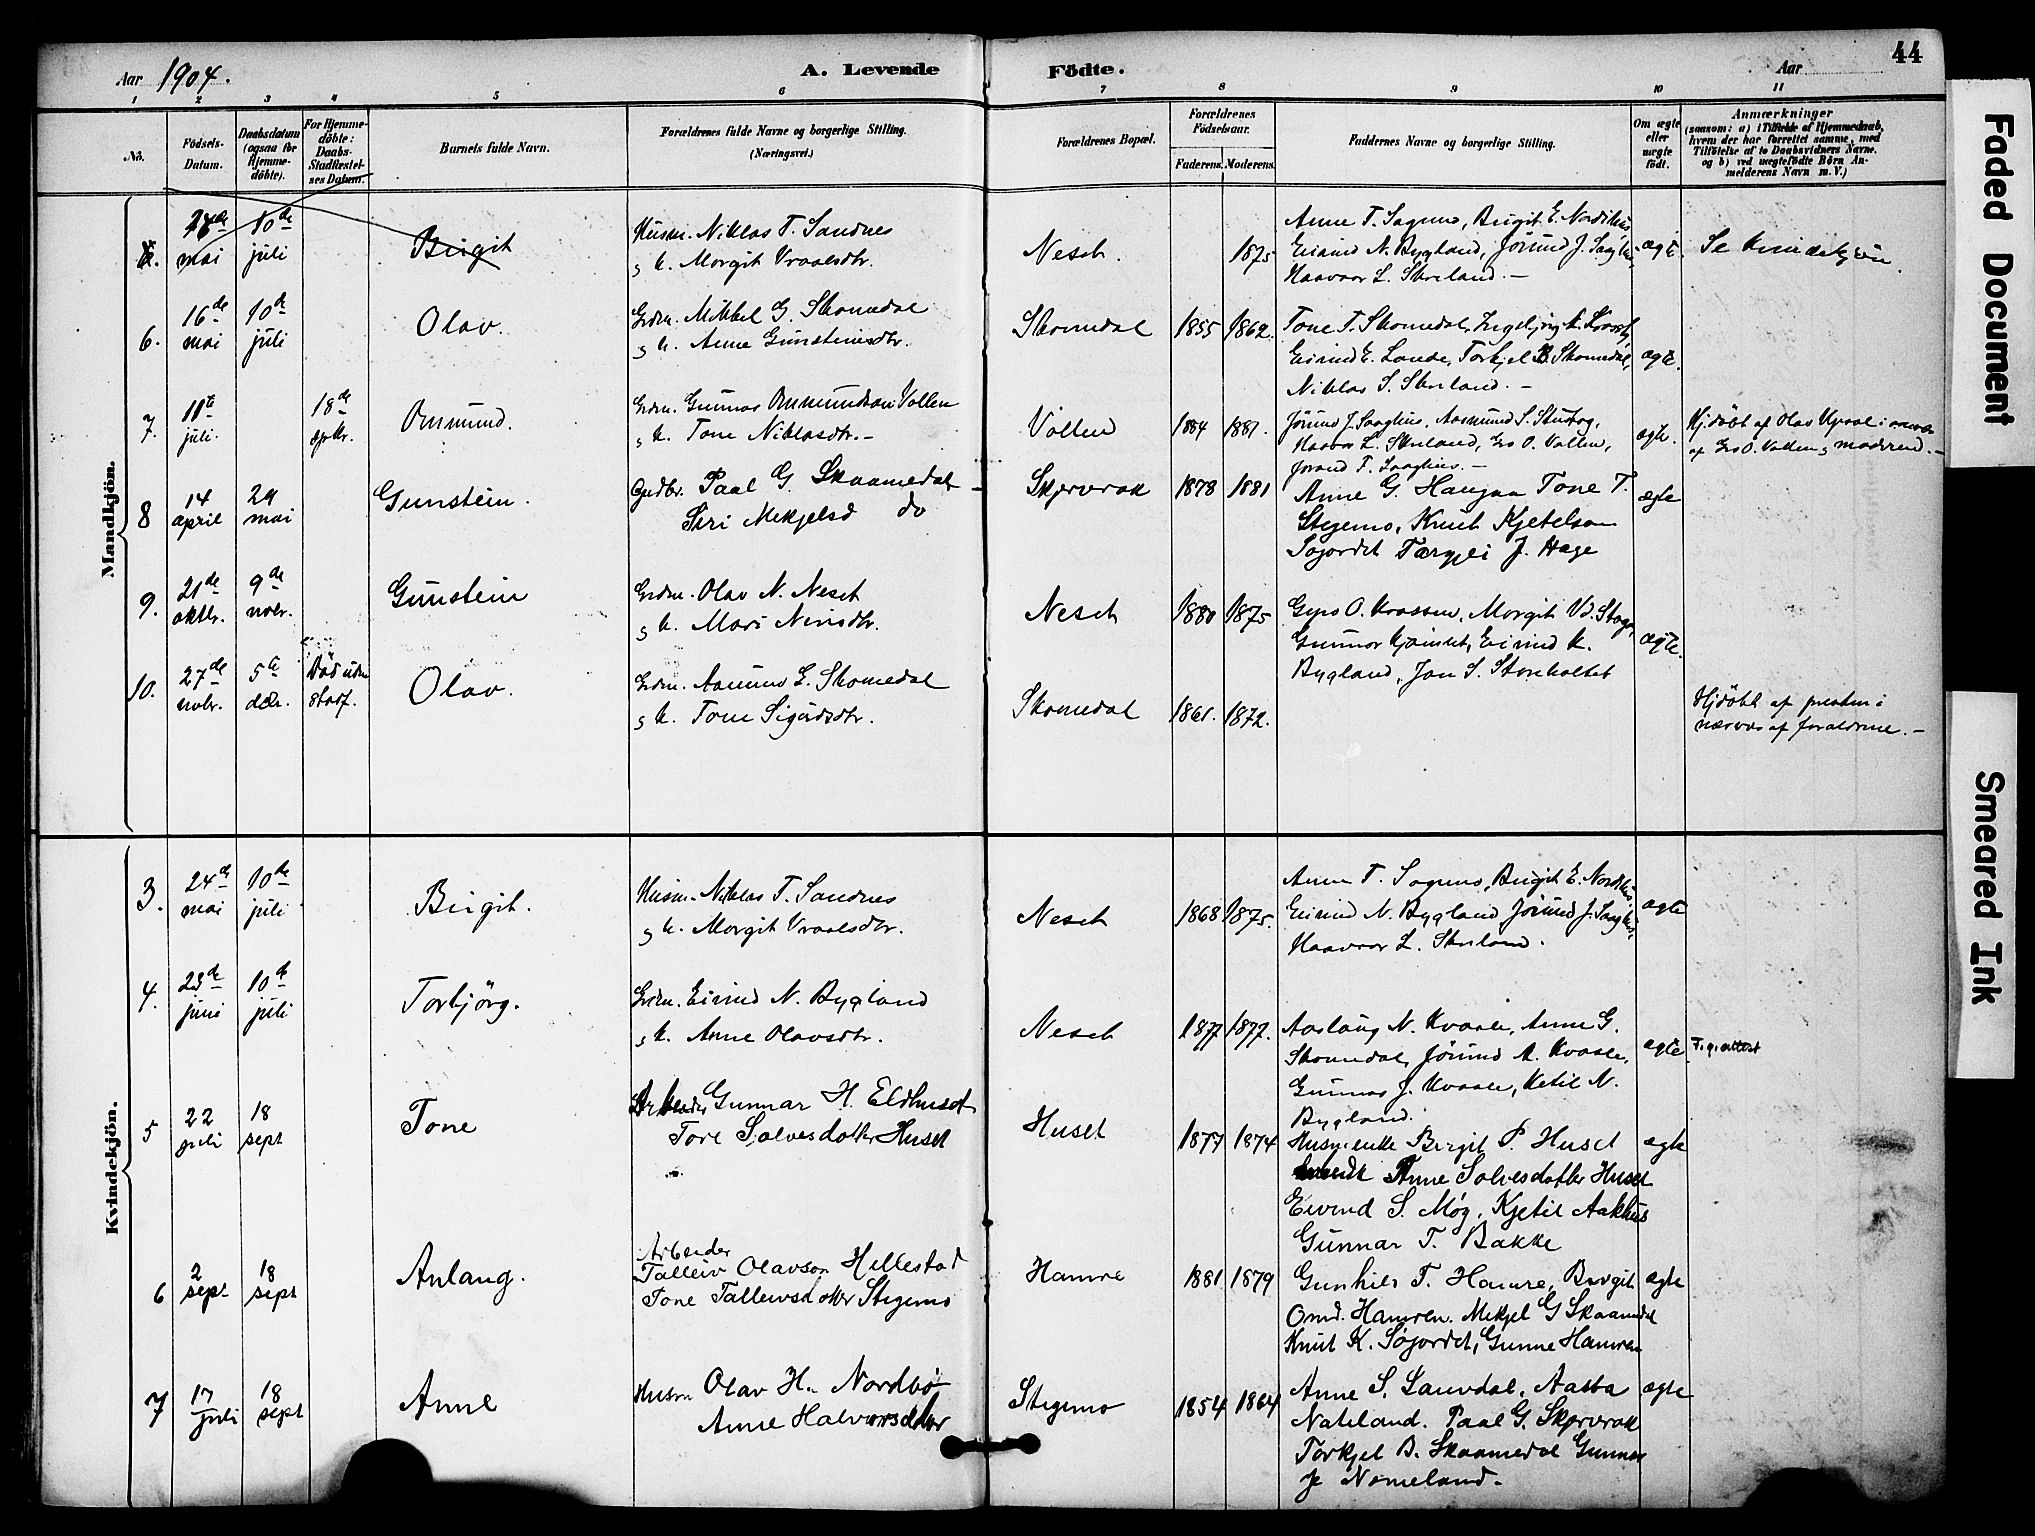 44
Aar 1904.
A. Levende Födte.
Aar
1 2 3 4 5 6 7 8 9 10 11
No.
Födsels-Datum.
Daabsdatum (ogsaa for Hjemme-döbte).
For Hjemme-döbte: Daabs-Stadfæstel-ses Datum.
Barnets fulde Navn.
Forældrenes fulde Navne og borgerlige Stilling.
(Næringsvei.)
Forældrenes Bopæl.
Forældrenes Födselsaar.
Faderens. Moderens.
Faddernes Navne og borgerlige Stilling.
Om ægte eller uægte födt.
Anmærkninger
(saasom: a) i Tilfælde af Hjemmedaab,
hvem der har forrettet samme, med
Tilföielse af to Daabsvidners Navne.
og b) ved uægtefödte Börn An-
melderens Navn m. V.)
Mandkjön.
24de mai
10de juli
Birgit
Husm. Niklas T. Sandnes
g k. Morgit Vraalsdtr.
Neset.
1875
Anne T. Sagmo, Birgit E. Nordhus,
Eivind N. Bygland, Jörund J.
Haavor L. Skreland. -
ægte.
Se kvindekjön.
6.
16de mai
10de juli
Olav.
Grdm. Mikkel G. Skomedal
g k. Anne Gunsteinsdtr.
Skomedal
1855 1862.
Tone T. Skomedal,
Eivind E. Lande, Torkjel B. Skomedal,
Niklas S. Skreland. -
ægte.
7.
11te juli.
18de septbr.
Ommund.
Grdm. Gunnar Ommundson Vollen
g k. Tone Niklasdtr. -
Vollen
1884 1881.
Jörund J. Saaghus, Aasmund S.
Haavor L. Skreland, Grs O. Vollen,
Jorand T. Saaghus. -
ægte.
Hjdöbt af Olav Upsal i nærvær
af Grs O. Vollen g moderen. -
8
14 april
24 mai
Gunstein.
Grdbr. Paal G. Skaamedal -
Siri Mekjelsd do
Skjervrak
1878 1881
Anne G. Haugaa Tone T.
Stegemo, Knut Kjetelson
Sögordet Targjei J. Hage
ægte
9.
21de oktbr.
9de novbr.
Gunstein
Grdm. Olav N. Neset
g k. Mari Nirisdtr.
Neset
1880 1875
Gyro O. Kvassen, Morgit
Gunnar Kjöinset, Eivind K.
Bygland, Jon S. Storeholtet
ægte.
10.
27de novbr.
5te dcbr.
Död uden stadf.
Olav.
Grdm. Aanund E. Skomedal
g k. Tone Sigurdsdtr.
Skomedal
1861. 1872.
Hjdöbt af presten i
nærvær af forældrene. -
Kvindekjön.
3.
24de mai
10de juli
Birgit.
Husm. Niklas T. Sandnes
g k. Morgit Vraalsdtr.
Neset
1868 1875.
Anne T. Sagmo, Birgit E. Nordhus,
Eivind N. Bygland Jörund J. Saaghus.
Haavor L. Skreland.
ægte
4.
23de juni
10de juli
Torbjörg.
Grdm. Eivind N. Bygland
g k. Anne Olavsdtr.
Neset
1877 1877.
Aaslaug N. Kvaale, Anne G.
Skomedal, Jörund A. Kvaale,
Gunnar J. Kvaale, Ketil N.
Bygland.
ægte
F. g. attest
5
22 juli
18 sept
Tone
Arbeider Gunnar H. Eldhuset
Tore Salvesdatter Huset
Huset
1877 1874
Husm. enke Birgit P. Huset
Anne Salvesdatter Huset
Eivind S. Møg, Kjetil Aakhus
Gunnar T. Bakke
ægte
6
2 sept
18 sept
Anlaug.
Arbeider
Talleiv Olavson Hillestad
Tone Talleivsdatter Stegemo
Hamre
1881 1879
Gunhild T. Hamre, Birgit
Omd. Hamren. Mekjel G Skaamedal
Knut K. Søgordet, Gunne Hamren
ægte
7
17 juli
18 sept
Anne
Husm Olav H. Nordbø
Anne Halvorsdatter
Stegemo
1854 1864
Anne S. Lauvdal, Aasba
Nateland. Paal G. Skjervrak
Torkjel B. Skaamedal Gunnar
J. Nomeland.
ægte
Faded Document
Smeared Ink